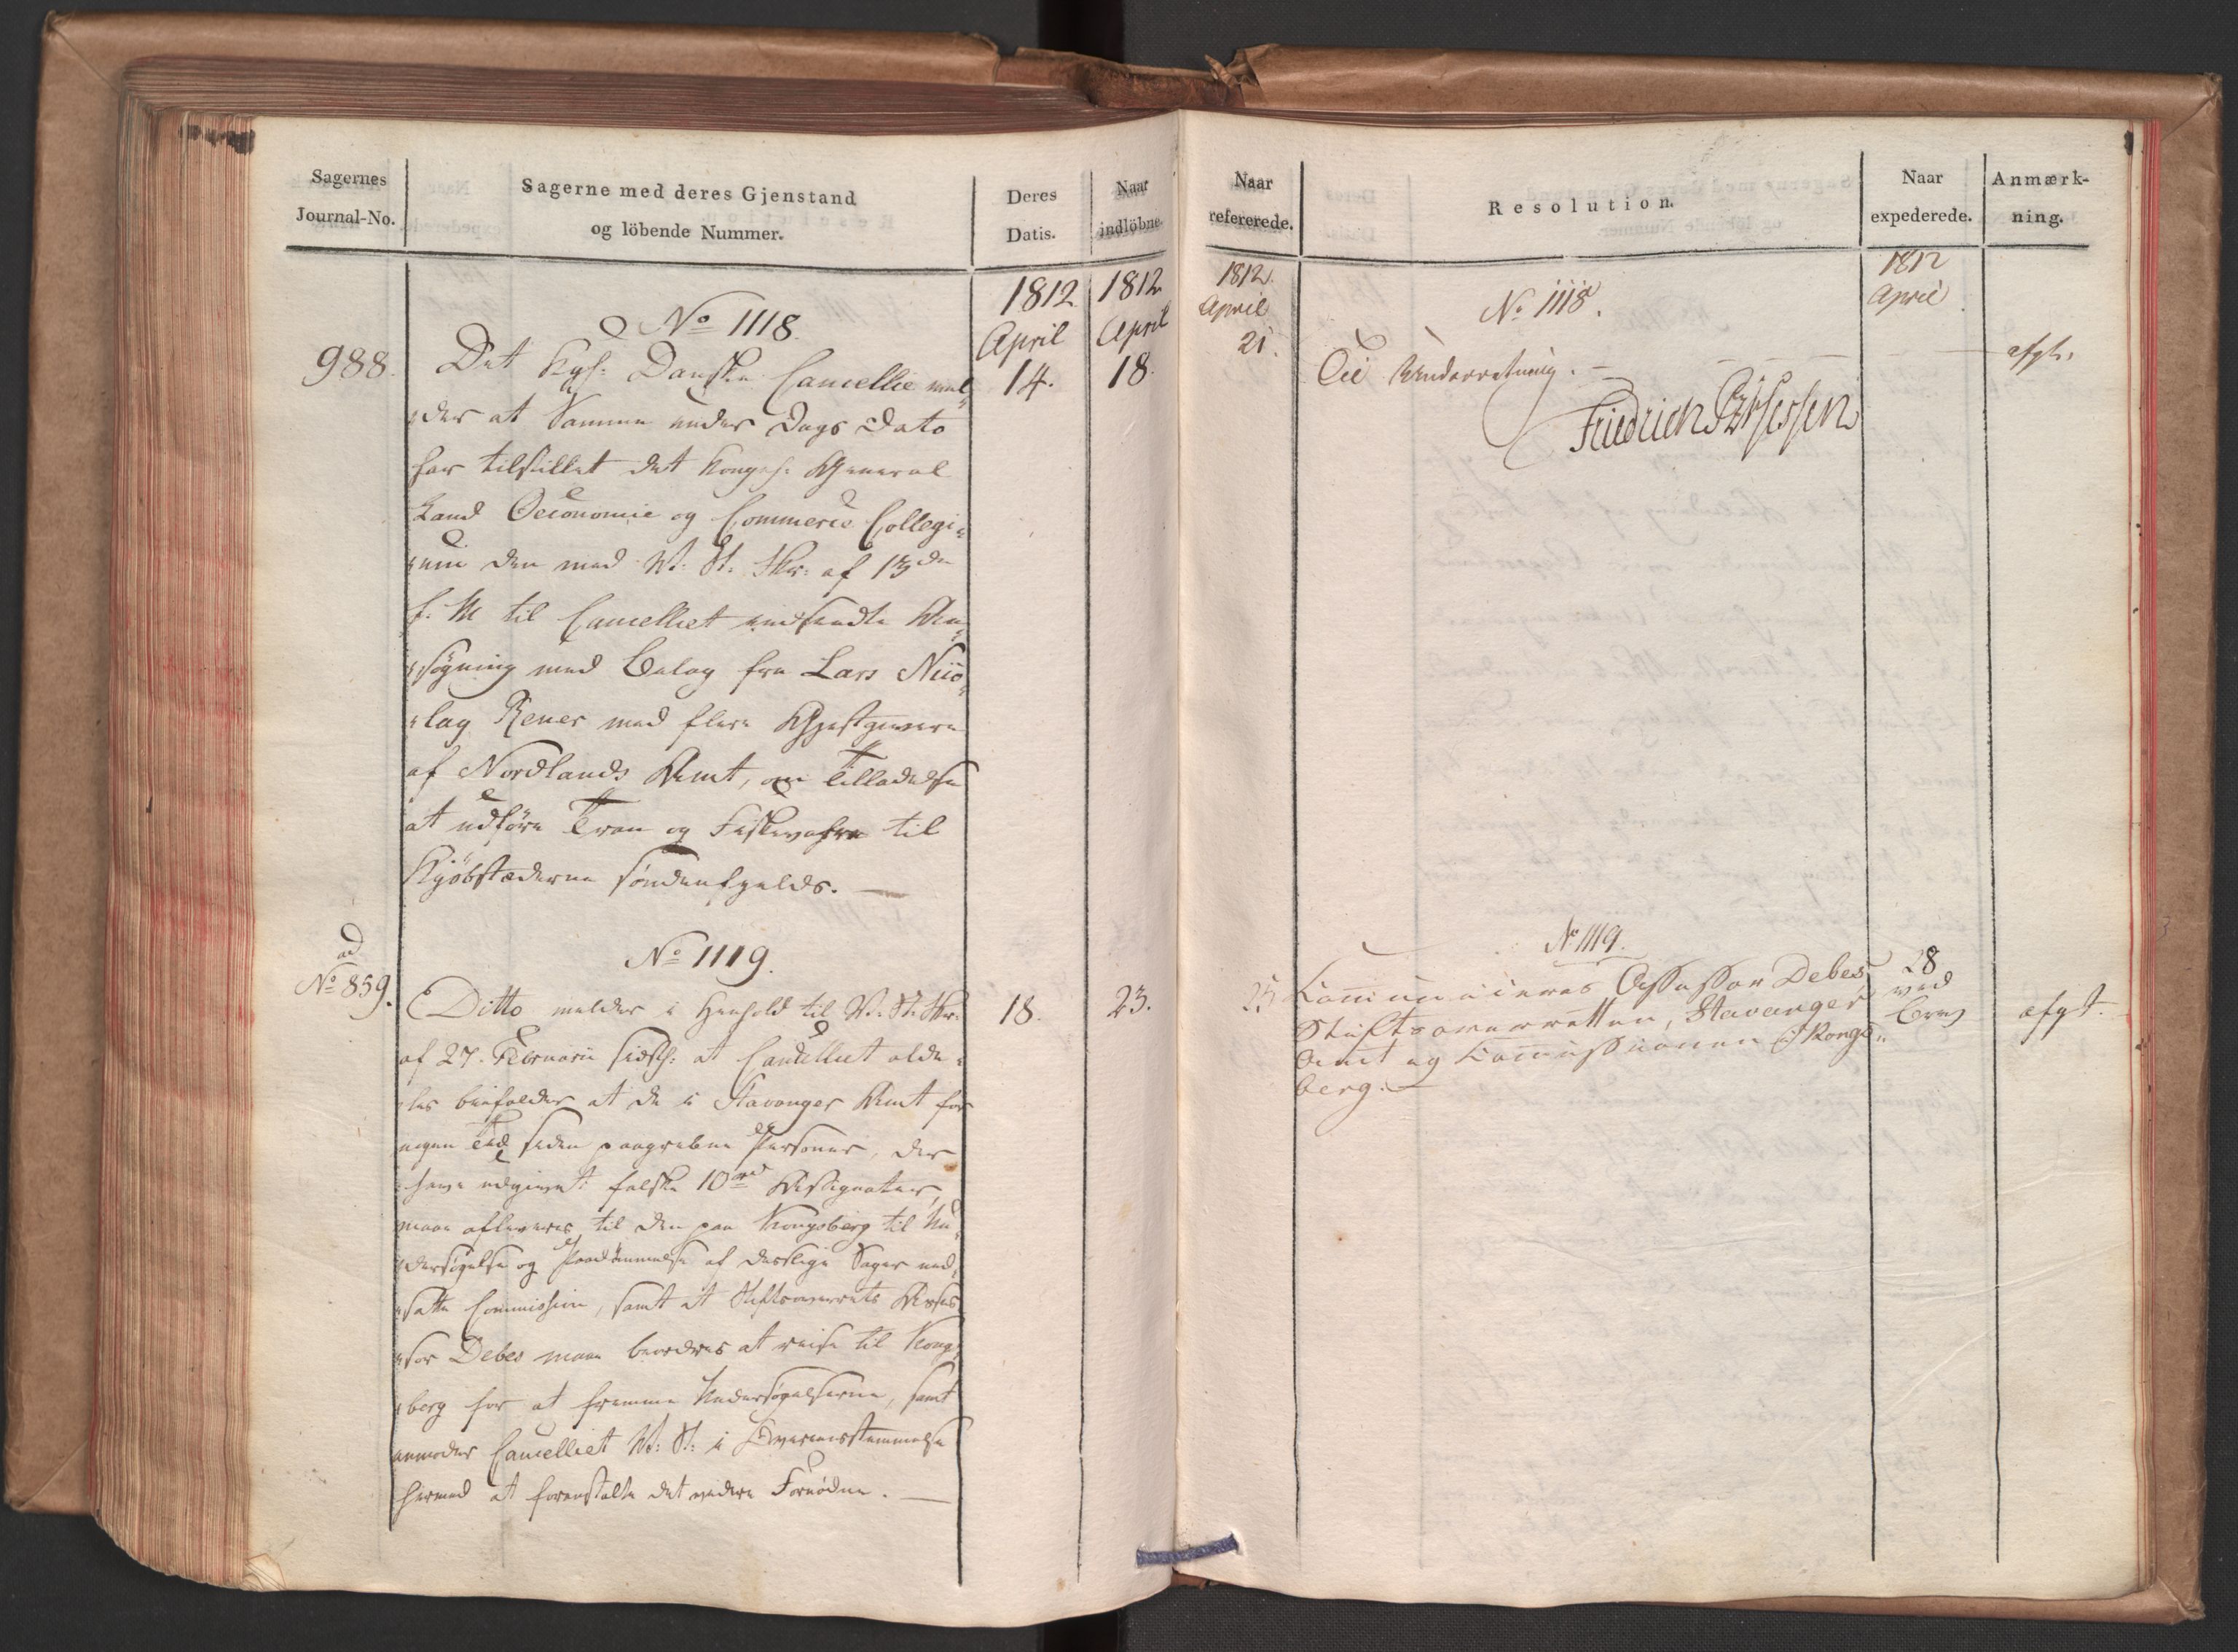 Sagernes
Journal-No.
Sagerne med deres Gjenstand
og löbende Nummer.
Deres
Datis.
Naar
indlöbne.
1812
April
1812
April
No 1118.
988.
Det Kgl: Danske Cancellie mel-
der at Samme under Dags Dato
14.
18.
har tilstillet det Kongel: General
Land Oeconomie og Commerce Collegi-
um den med V. St: Skr: af 13de
f: M til Cancelliet indsendte An-
søgning med Bilag fra Lars
med flere Gjestgivere
af Nordlands Amt, om Tilladelse
at udføre Tran og Fiskevahre til
Kjöbstæderne søndenfjelds.
No 1119.
ad
No 859.
Ditto melder i Henhold til V. St. Skr:
18.
23.
af 27. Februarii sidstl: at Cancelliet alde-
les bifalder at de i Stavanger Amt for
nogen Tid siden paagrebne Personer, der
have udgivet falske 10 Assignater,
maae afleveres til den paa Kongsberg til Un-
dersøgelse og Paadømmelse af deslige Sager ned-
satte Commission, samt at Stiftsoverrets Asses-
sor Debes maae beordres at reise til Kongs-
berg for at fremme Undersøgelserne, samt
anmoder Cancelliet V: St: i Overeensstemmelse
hermed at foranstalte det videre Fornødne.
Naar
refererede.
Resolution.
Naar
expederede.
Anmærk-
ning.
1812.
April
21.
No 1118.
1812
April
Til Underretning.
afgt.
Friedrich
No 1119.
25
Communiceres Assessor Debes
Stiftsoverretten, Stavanger
Amt og Commissionen i Kongs-
berg.
28
ved
Brev
afgt.